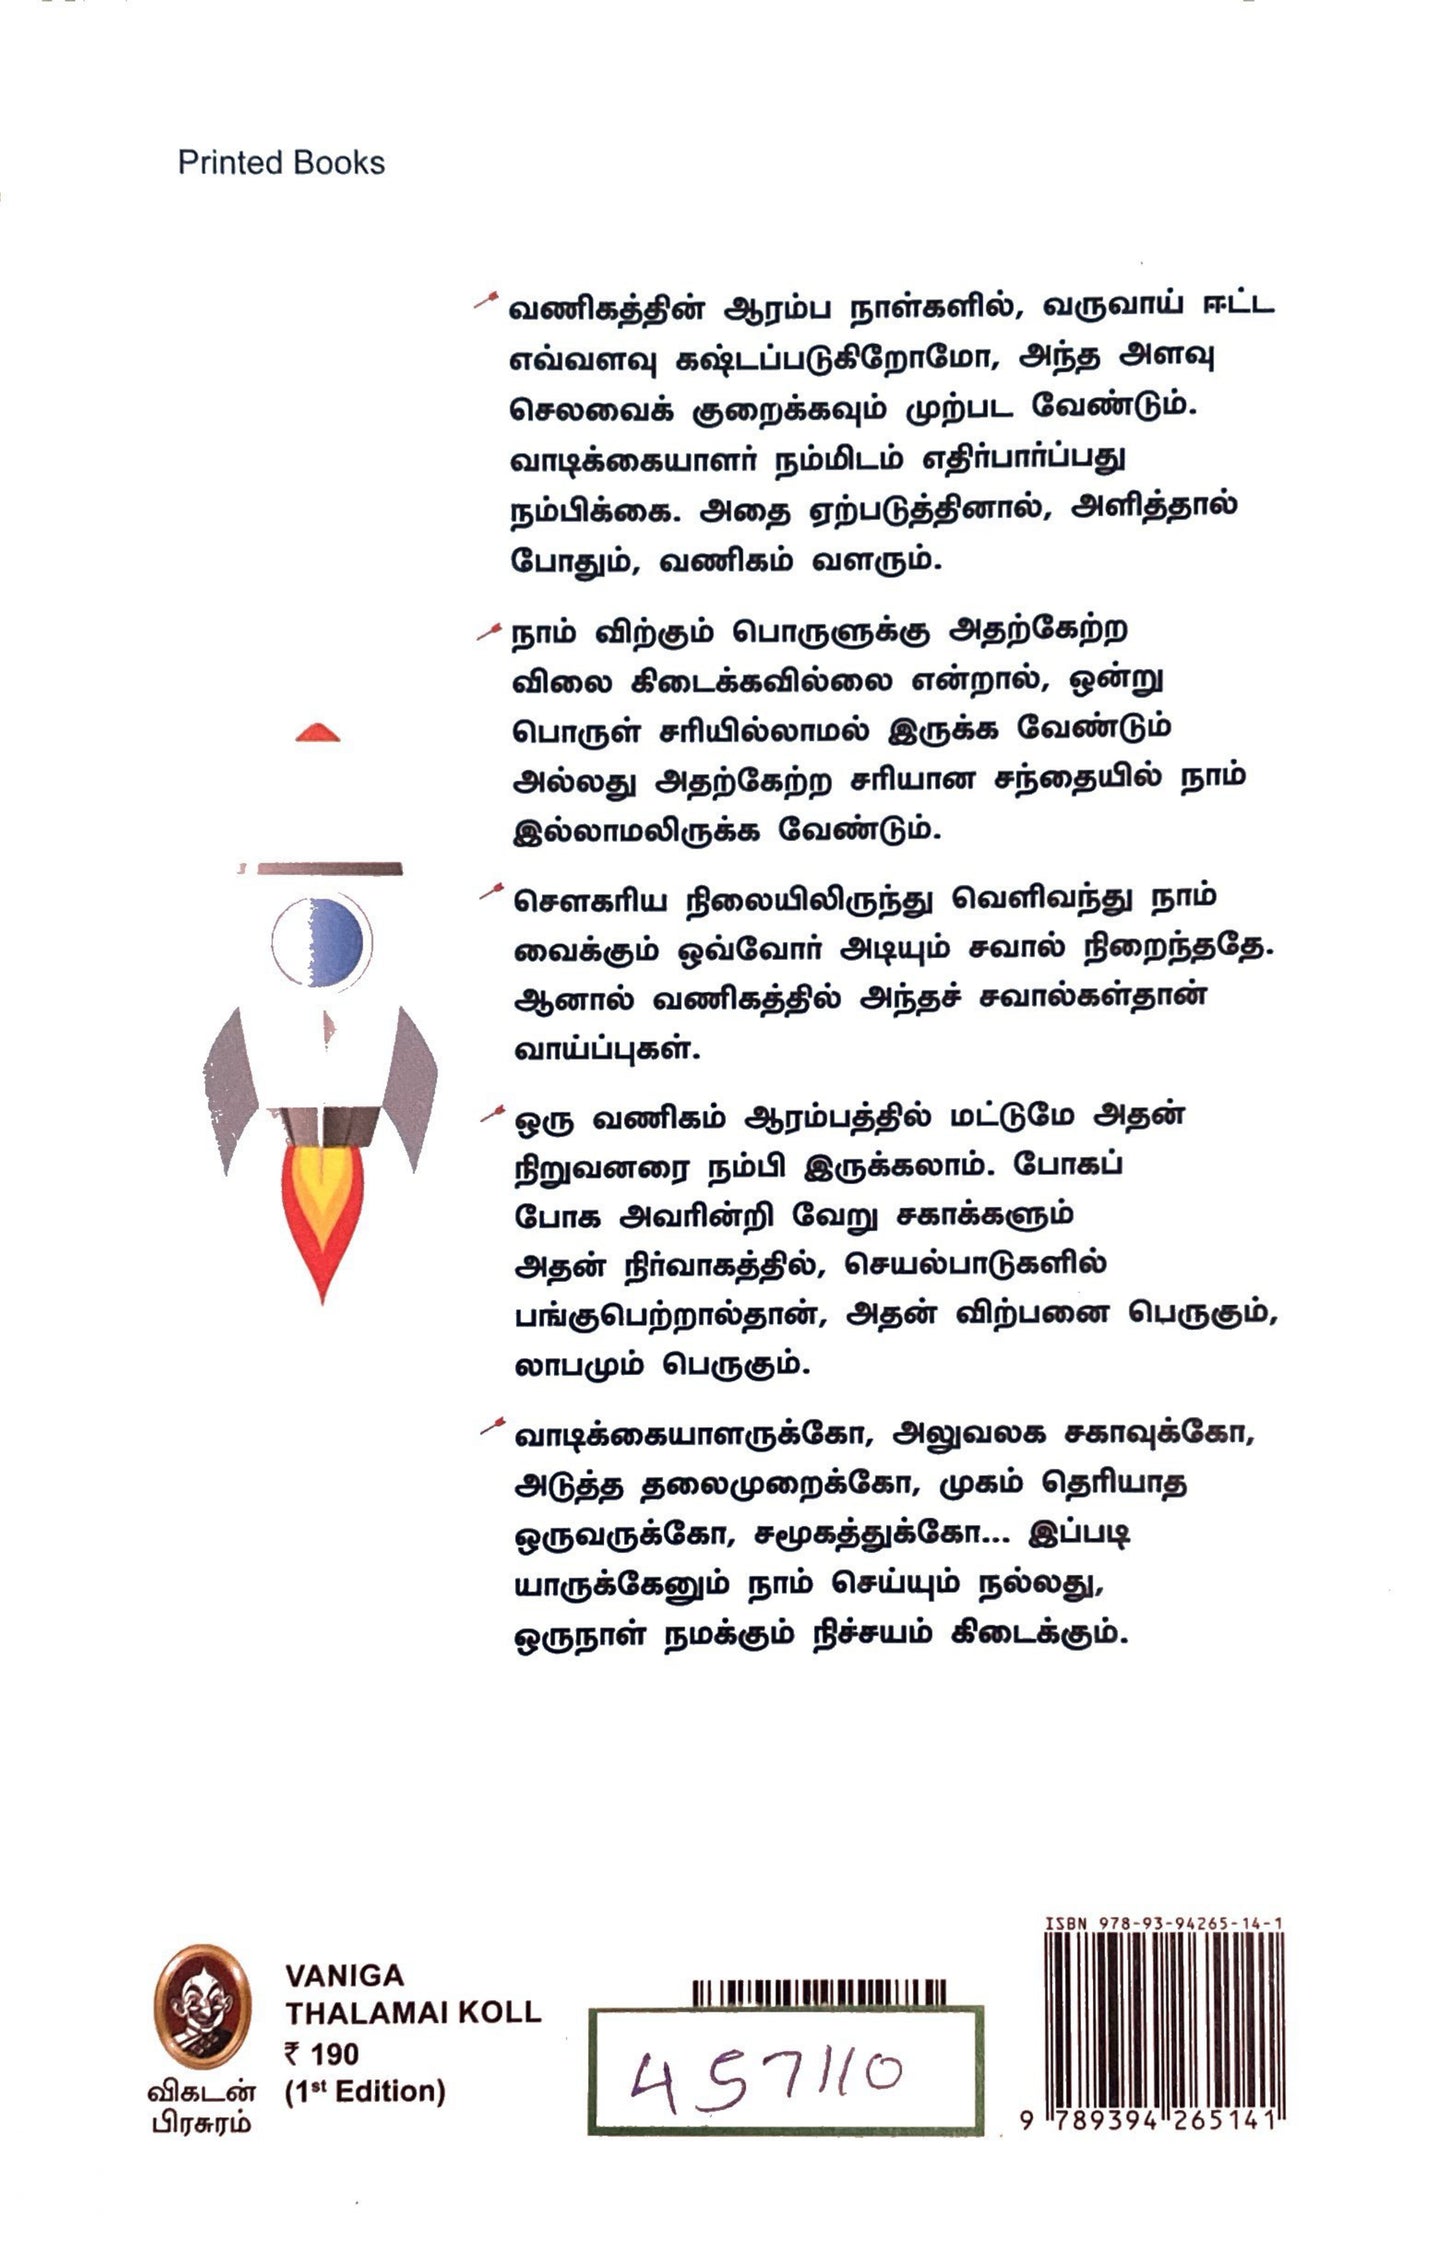 Printed Books
வணிகத்தின் ஆரம்ப நாள்களில், வருவாய் ஈட்ட
எவ்வளவு கஷ்டப்படுகிறோமோ, அந்த அளவு
செலவைக் குறைக்கவும் முற்பட வேண்டும்.
வாடிக்கையாளர் நம்மிடம் எதிர்பார்ப்பது
நம்பிக்கை. அதை ஏற்படுத்தினால், அளித்தால்
போதும், வணிகம் வளரும்.
நாம் விற்கும் பொருளுக்கு அதற்கேற்ற
விலை கிடைக்கவில்லை என்றால், ஒன்று
பொருள் சரியில்லாமல் இருக்க வேண்டும்
அல்லது அதற்கேற்ற சரியான சந்தையில் நாம்
இல்லாமலிருக்க வேண்டும்.
சௌகரிய நிலையிலிருந்து வெளிவந்து நாம்
வைக்கும் ஒவ்வோர் அடியும் சவால் நிறைந்ததே.
ஆனால் வணிகத்தில் அந்தச் சவால்கள்தான்
வாய்ப்புகள்.
ஒரு வணிகம் ஆரம்பத்தில் மட்டுமே அதன்
நிறுவனரை நம்பி இருக்கலாம். போகப்
போக அவரின்றி வேறு சகாக்களும்
அதன் நிர்வாகத்தில், செயல்பாடுகளில்
பங்குபெற்றால்தான், அதன் விற்பனை பெருகும்,
லாபமும் பெருகும்.
வாடிக்கையாளருக்கோ, அலுவலக சகாவுக்கோ,
அடுத்த தலைமுறைக்கோ, முகம் தெரியாத
ஒருவருக்கோ, சமூகத்துக்கோ... இப்படி
யாருக்கேனும் நாம் செய்யும் நல்லது,
ஒருநாள் நமக்கும் நிச்சயம் கிடைக்கும்.
விகடன்
பிரசுரம்
VANIGA
THALAMAI KOLL
₹ 190
(1st Edition)
457110
ISBN 978-93-94265-14-1
9 789394 265141